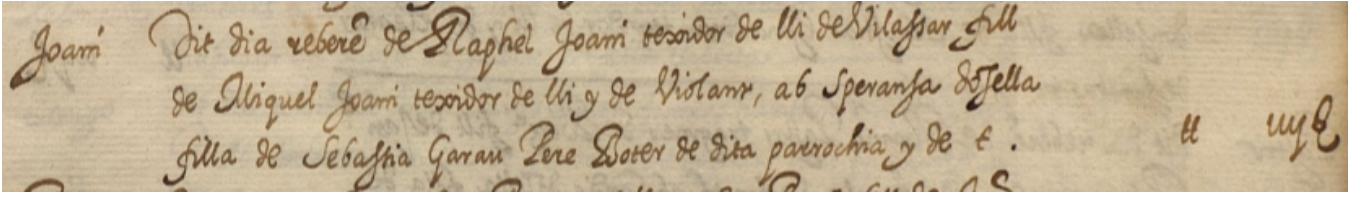 Joani Dit dia reberē de Raphel Joani texidor de lli de Vilassar fill
de Miquel Joani texidor de lli y de Violant, ab Speransa dōsella
filla de Sebastia Garau Pere Boter de dita parrochia y de t . tt iiij ẞ